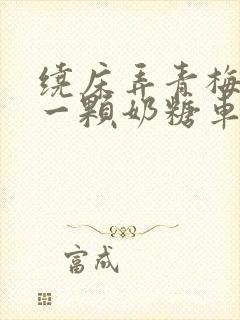 绕床弄青梅
一颗奶糖车
富成